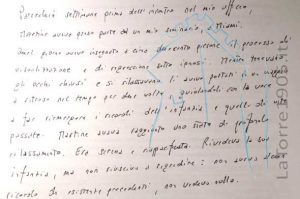 Parecchie settimane prima dell'incontro nel mio ufficio,
Martine aveva preso parte ad un mio seminario, a Miami.
avevo insegnato a cinquecento persone il processo di
visualizzazione e di regressione sotto ipnosi. Mentre tenevano
gli occhi chiusi e si rilassavano li avevo portati
a ritroso nel tempo per due volte, guidandoli con la voce
a far riemergere i ricordi dell'infanzia e quelli di vite
passate. Martine aveva raggiunto uno stato di profondo
rilassamento. Era serena e Rivedeva la sua
infanzia, ma non riusciva a regredire: non aveva alcun
ricordo di esistenze precedenti, non vedeva nulla.
Latorre1905.it